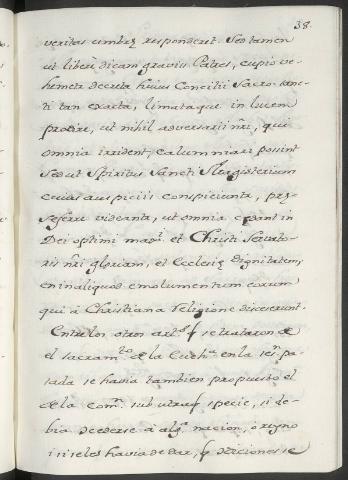 38.
veritas umbrę responderit. Sed tamen
ut liberè dicam gravis. Patres, cupio ve-
hementer decreta huius Concilii Sacro-sanc-
ti tan exacta, limataque in lucem
prodire, ut nihil adversarii nři, qui
omnia irrident, calumniari possint
Sed ut Spiritus Sancti Magisterium
cuius auspiciis conspiciunta, prę-
seferre videanta, ut omnia cedant in
Dei optimi max.i et Christi Servato-
ris nři gloriam, et Ecclesię Dignitatem,
en in aliquod emolumentum eorum
qui à Christiana Religione discesserunt.
Entre los otros art.os q se trataron de
el sacram.to de la Euch.a en la ses.n pa-
sada se havia tambien propuesto el
de la Com.n sub utraq specie, si de-
bia cederse à alg.a nacion, o reyno
i si se les havia de dar, q condiciones se